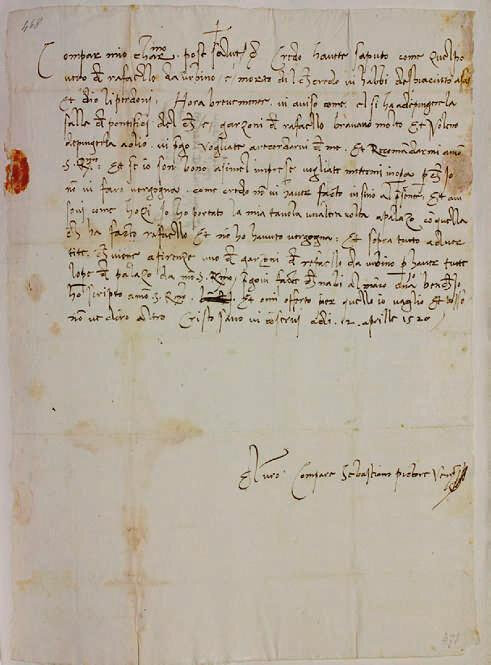 468
Compar mio char.mo post salute etc. Credo havete saputo come quel po
vero de rafaello da urbino e morto di che credo vi habbi despiaciuto assai
Et dio li perdoni. Hora brevemente vi aviso come el si ha a depingere la
salla de pontefici del che e garzoni de rafaello bravano molto et voleno
depingerla a olio. vi prego vogliate arecordarvi de me. Et Recomandarmi a mon.
S. R.mo. Et se io son bono a simel imprese vogliate metermi in opra per che io
non vi faro vergogna. come credo non vi haver facto insino al presente. Et avi
sovi come hogi io ho portato la mia tavola un altra volta a palazo co quella
che ha facto rafaello et no ho havuto vergogna. Et sopra tutto adver
tite che viene a fiorenze uno de garzoni de rafaello da urbino per haver tutte
lope de palazo da mon. S. R.mo
ho scripto a mo S. R.mo Et omi offerto quello io vaglio Et posso
non ve diro altro Cristo sano vi conservi adi. 12. aprille 1520
El vro. Compare Sebastiano pictore
471